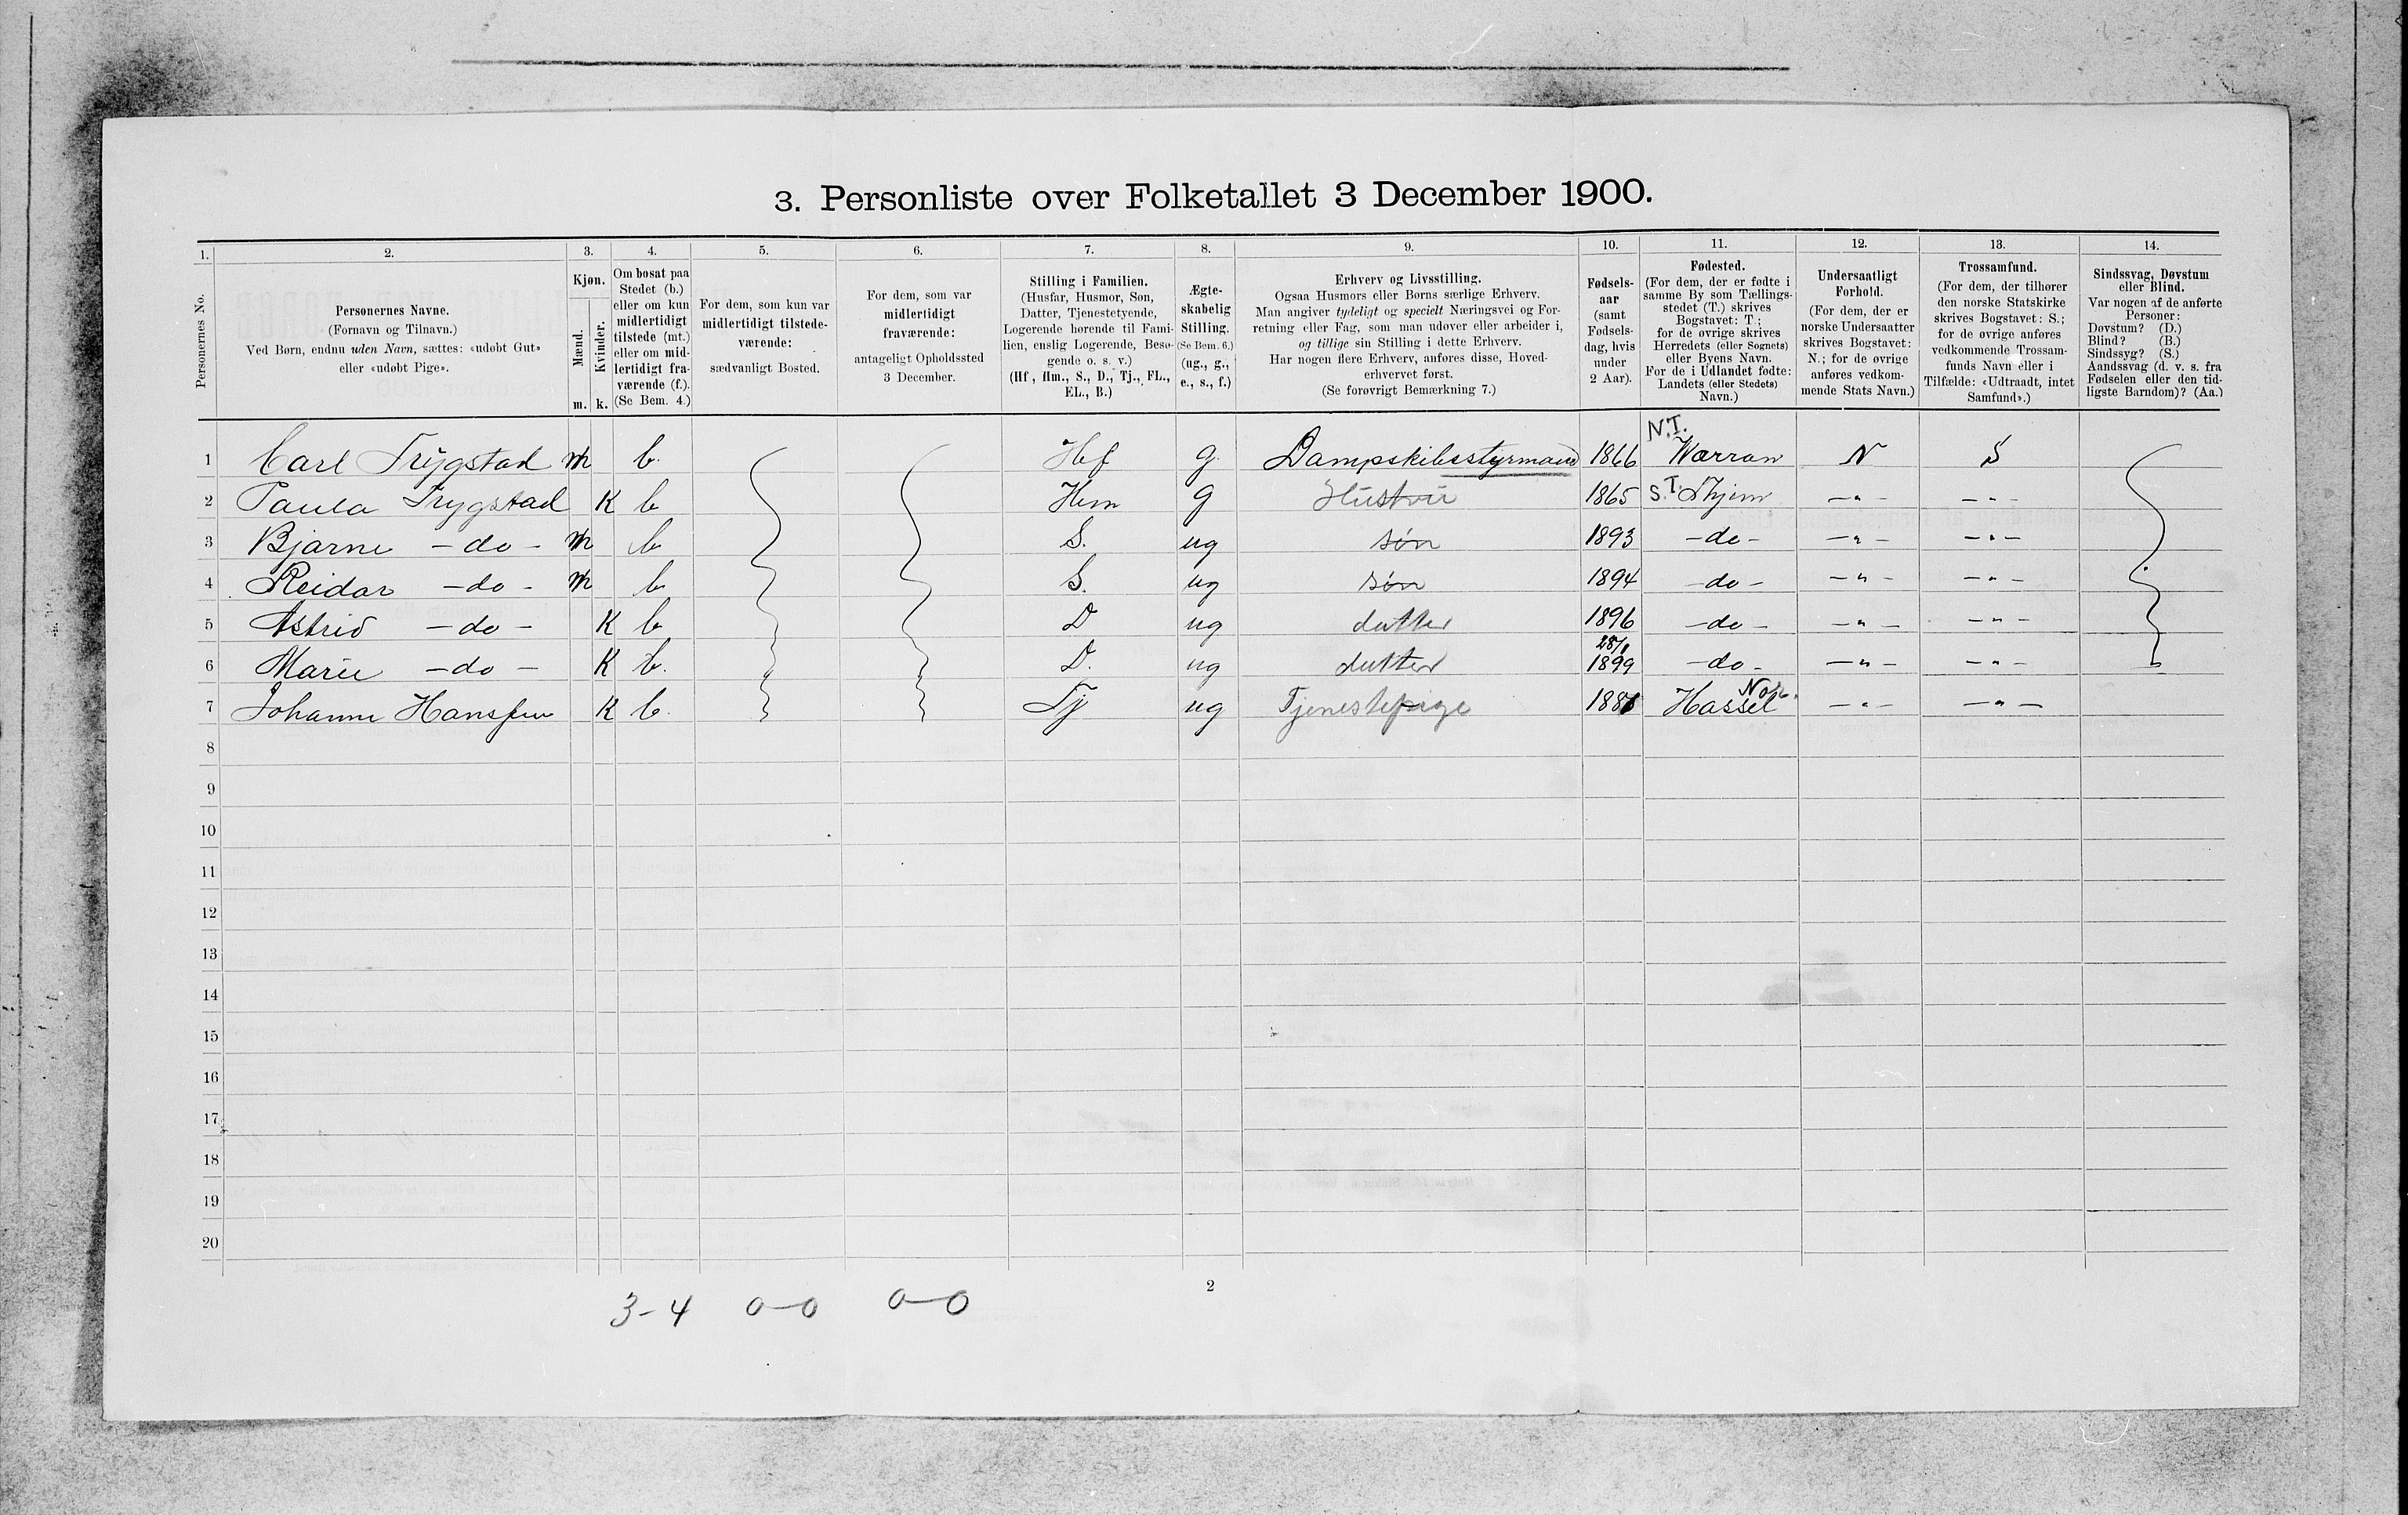 3. Personliste over Folketallet 3 December 1900.
1. 2. 3. 4. 5. 6. 7. 8. 9. 10. 11. 12. 13. 14.
Personernes No.
Personernes Navne.
(Fornavn og Tilnavn.)
Ved Børn, endnu uden Navn, sættes: «udøbt Gut»
eller «udøbt Pige».
Kjøn.
Mænd.
Kvinder.
m. k.
Om bosat paa
Stedet (b.)
eller om kun
midlertidigt
tilstede (mt.)
eller om mid-
lertidigt fra-
værende (f.).
(Se Bem. 4.)
For dem, som kun var
midlertidigt tilstede-
værende:
sædvanligt Bosted.
For dem, som var
midlertidigt
fraværende:
antageligt Opholdssted
3 December.
Stilling i Familien.
(Husfar, Husmor, Søn,
Datter, Tjenestetyende,
Logerende hørende til Fami-
lien, enslig Logerende, Besø-
gende o. s. v.)
(Hf., Hm., S., D., Tj., FL.,
EL., B.)
Ægte-
skabelig
Stilling.
(Se Bem. 6.)
(ug., g.,
e., s., f.)
Erhverv og Livsstilling.
Ogsaa Husmors eller Børns særlige Erhverv.
Man angiver tydeligt og specielt Næringsvei og For-
retning eller Fag, som man udøver eller arbeider i,
og tillige sin Stilling i dette Erhverv.
Har nogen flere Erhverv, anføres disse, Hoved-
erhvervet først.
(Se forøvrigt Bemærkning 7.)
Fødsels-
aar
(samt
Fødsels-
dag, hvis
under
2 Aar).
Fødested.
(For dem, der er fødte i
samme By som Tællings-
stedet (T.) skrives
Bogstavet: T.;
for de øvrige skrives
Herredets (eller Sognets)
eller Byens Navn.
For de i Udlandet fødte:
Landets (eller Stedets)
Navn.)
Undersaatligt
Forhold.
(For dem, der er
norske Undersaatter
skrives Bogstavet:
N.; for de øvrige
anføres vedkom-
mende Stats Navn.)
Trossamfund.
(For dem, der tilhører
den norske Statskirke
skrives Bogstavet: S.;
for de øvrige anføres
vedkommende Trossam-
funds Navn eller i
Tilfælde: «Udtraadt, intet
Samfund».)
Sindssvag, Døvstum
eller Blind.
Var nogen af de anførte
Personer:
Døvstum? (D.)
Blind? (B.)
Sindssyg? (S.)
Aandssvag (d. v. s. fra
Fødselen eller den tid-
ligste Barndom)? (Aa.)
N.T.
1 Carl Trygstad m b. Hf g. Dampskibsstyrmand 1866 Værran N S
2 Paula Trygstad K b Hm g Hustru 1865 S.T. Thjem -"- -"-
3 Bjarne -do- m b S. ug søn 1893 -do- -"- -"-
4 Reidar -do- m b S. ug søn 1894 -do- -"- -"-
5 Astrid -do- K b D ug datter 1896 -do- -"- -"-
6 Marie -do- K b. D. ug datter 28/1 1899 -do- -"- -"-
7 Johanne Hanssen K b. Tj ug Tjenestepige 1881 Hassel -"- -"-
8
9
10
11
12
13
14
15
16
17
18
19
20
2
3-4 0-0 0-0